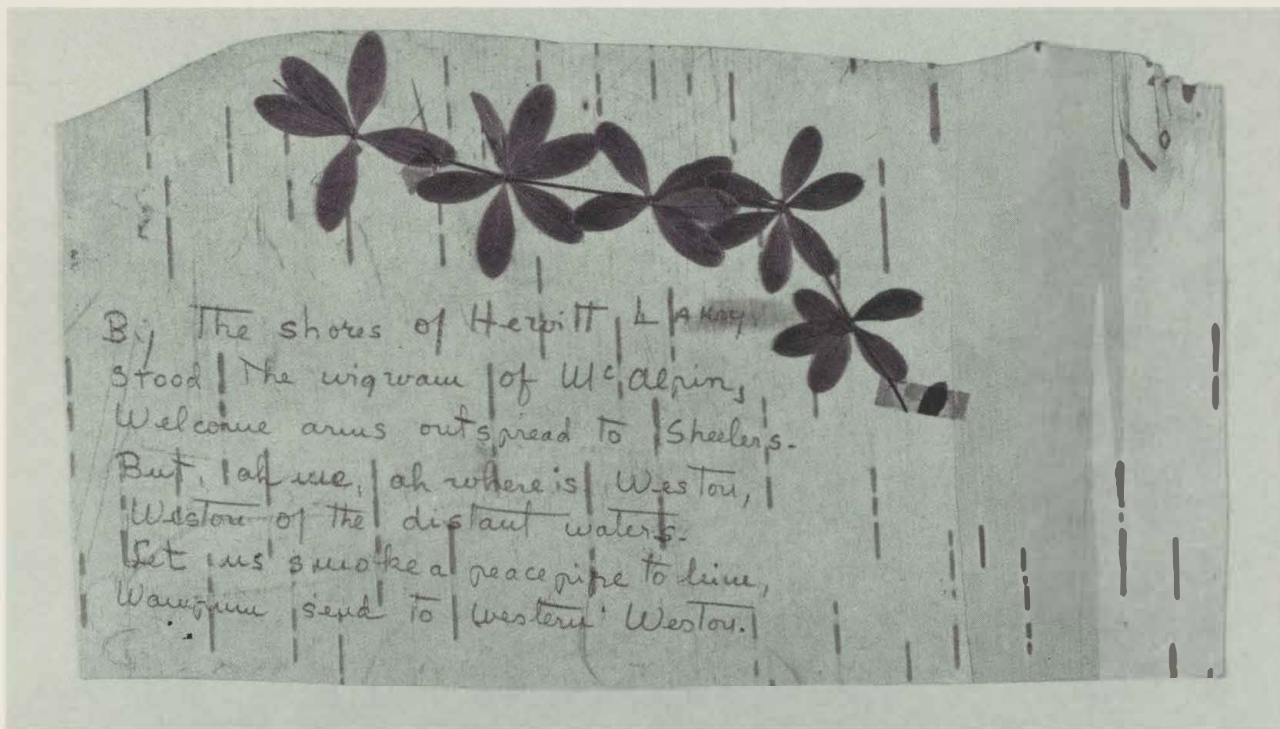 By The shores of Hewitt Lakey
Stood The wigwam of McAlpin,
Welcome arms outspread To Sheelers.
But, ah me, ah where is Weston,
Weston of The distant waters.
Let us smoke a peace pipe To him,
send To Western Weston.